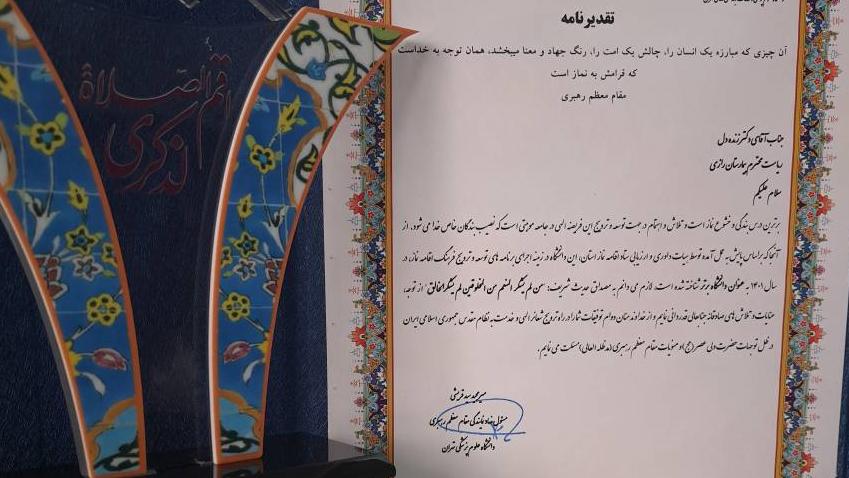 اقم الصلاة
لذکری
تقدیرنامه
آن چیزی که مبارزه یک انسان را، چالش یک امت را، رنگ جهاد و معنا میبخشد، همان توجه به خداست
که قرامش به نماز است
مقام معظم رهبری
جناب آقای دکتر زنده دل
ریاست محترم بیمارستان رازی
سلام علیکم
برترین درس بندگی و خشوع نماز است و تلاش و اهتمام در جهت توسعه و ترویج این فریضه الهی در جامعه موهبتی است که نصیب بندگان خاص خدا می شود، از
آنجا که بر اساس پایش به عمل آمده توسط هیات داوری و ارزیابی ستاد اقامه نماز استان، این دانشگاه در زمینه اجرای برنامه های توسعه و ترویج فرهنگ اقامه نماز، در
سال ۱۴۰۱ به عنوان دانشگاه برتر شناخته شده است؛ لازم می دانم به مصداق حدیث شریف: «من لم یشکر المنعم من المخلوقین لم یشکر الخالق» از توجه،
عنایات و تلاش های صادقانه جنابعالی قدردانی نمایم و از خداوند منان دوام توفیقات شما را در راه ترویج شعائر الهی و خدمت به نظام مقدس جمهوری اسلامی ایران
در ظل توجهات حضرت ولی عصر (عج) و منویات مقام معظم رهبری (مدظله العالی) مسئلت می نمایم.
سید قریشی
مسئول نهاد نمایندگی مقام معظم رهبری
دانشگاه علوم پزشکی تهران